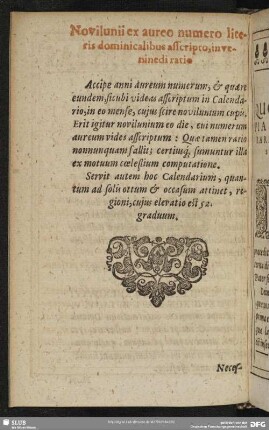 Novilunii ex aureo numero lite-
ris dominicalibus asscripto, inve-
niendi ratio
Accipe anni aureum numerum, & quære
eundem, sicubi videas asscriptum in Calenda-
rio, in eo mense, cujus scire novilunium cupis.
Erit igitur novilunium eo die, cui numerum
aureum vides asscriptum: Quæ tamen ratio
nonnunquam fallit; certiusq; sumuntur illa
ex motuum cœlestium computatione.
Servit autem hoc Calendarium, quan-
tum ad solis ortum & occasum attinet, re-
gioni, cujus elevatio est 52.
graduum.
Neces-
SLUB
DFG